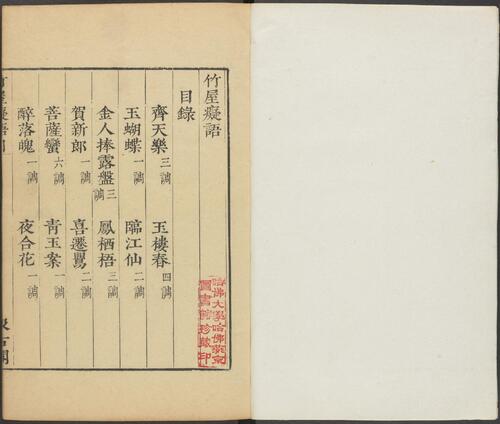 竹屋癡語
目錄
齊天樂三調 玉樓春四調
玉蝴蝶一調 臨江仙二調
金人捧露盤三調 鳳栖梧三調
賀新郎一調 喜遷鶯二調
菩薩蠻六調 青玉案一調
醉落魄一調 夜合花一調
竹屋癡語目
汲古閣
哈佛大學哈佛燕京
圖書館珍藏印